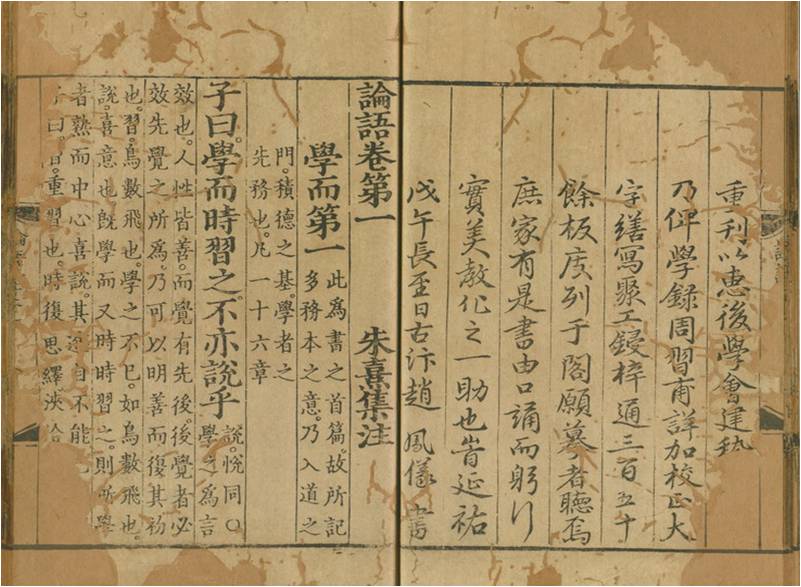 重刊以惠後學會建
乃俾學錄周習甫詳加校正大
字繕寫聚工鋟梓通三百五十
餘板庋列于閣願摹者聽焉
庶家有是書由口誦而躬行
實美教化之一助也旹延祐
戊午長至日古汴趙鳳儀書
論語卷第一 朱熹集注
學而第一 此為書之首篇。故所記
多務本之意。乃入道之
門。積德之基。學者之
先務也。凡一十六章
子曰。學而時習之。不亦說乎 說。悅同○
學之為言
效也。人性皆善。而覺有先後。後覺者必
效先覺之所為。乃可以明善而復其初
也。習。鳥數飛也。學之不已。如鳥數飛也。
說。喜意也。既學而又時時習之。則所學
者熟而中心喜說。其進自不能
子曰。習。重習也。時復思繹。浹洽